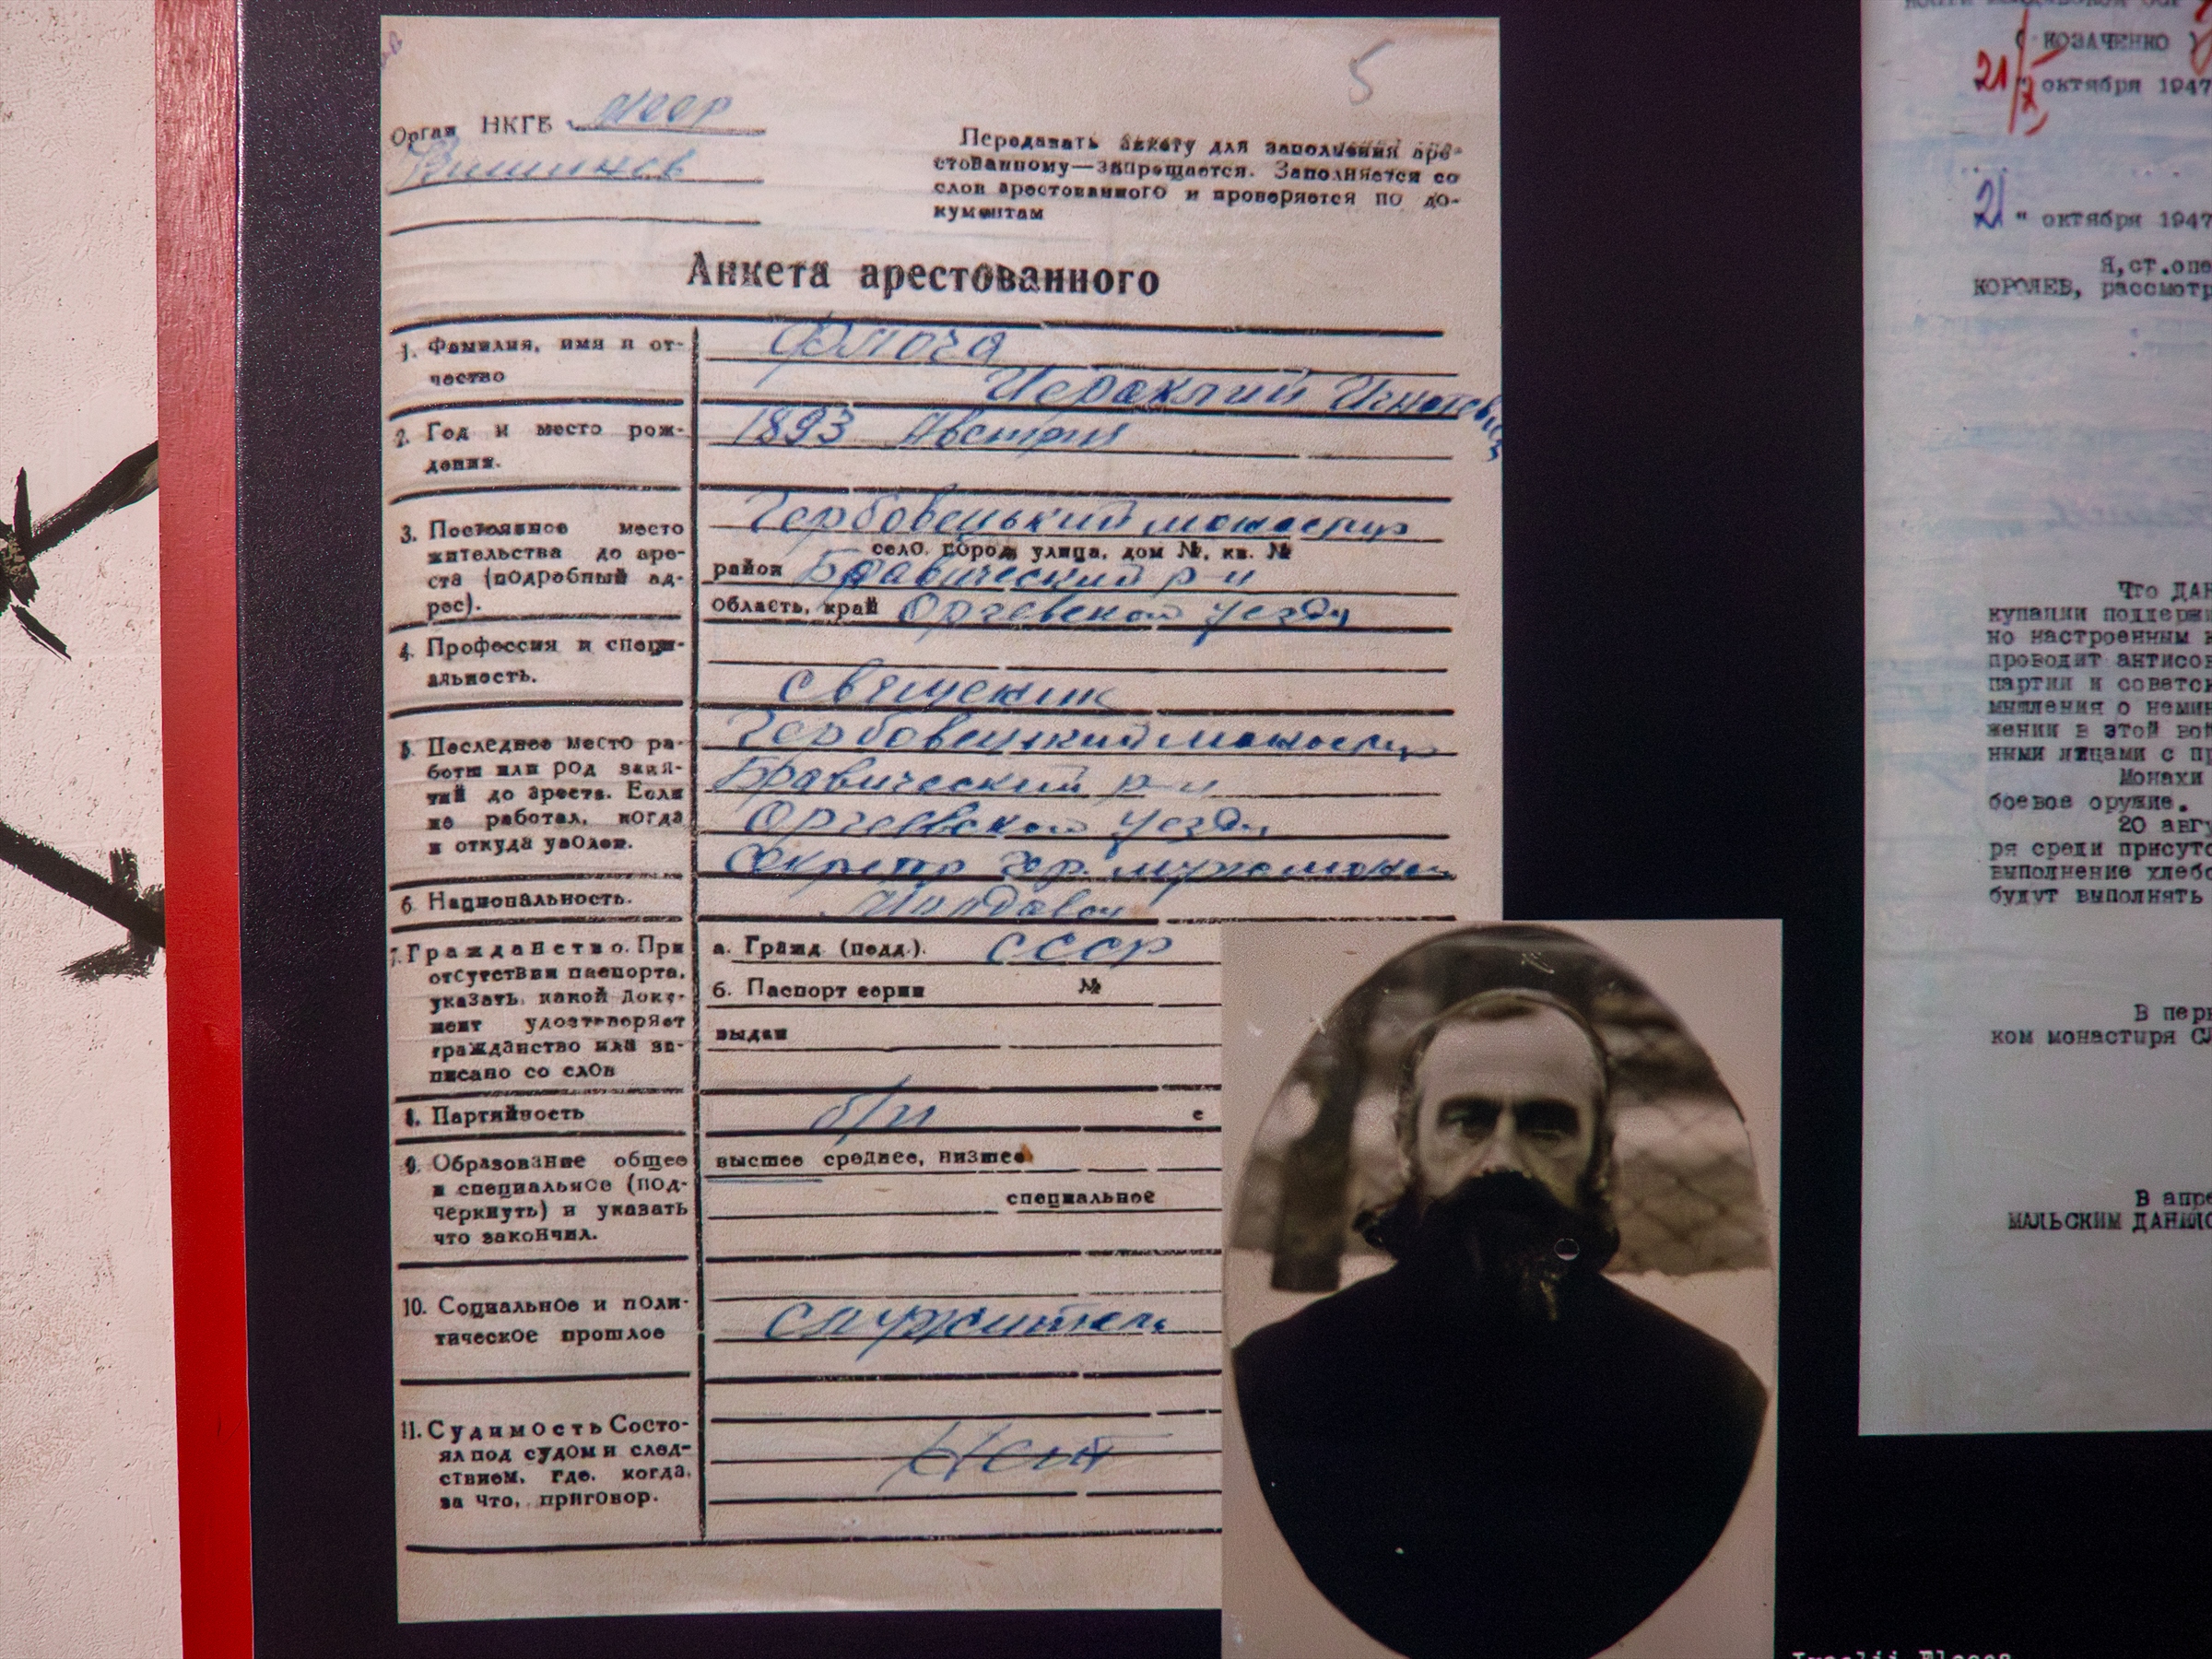 5
Орган НКГБ МССР
Кишинев
Передавать анкету для заполнения аре-
стованному—запрещается. Заполняется со
слов арестованного и проверяется по до-
кументам
Анкета арестованного
1. Фамилия, имя и от-
чество
Флоча
Иераклий Игнатевич
2. Год и место рож-
дения.
1893 Австрия
3. Постоянное место
жительства до аре-
ста (подробный ад-
рес).
Гербовецький монастир
село, город, улица, дом №, кв. №
район Бравический р-н
Область, край Оргевского уезда
4. Профессия и специ-
альность.
священик
5. Последнее место ра-
боты или род заня-
тий до ареста. Если
не работал, когда
и откуда уволен.
Гербовецкий монастир
Бравический р-н
Оргеевского уезда
Секретар Гер.
6. Национальность.
Молдован
7. Гражданство. При
отсутствии паспорта,
указать, какой доку-
мент удостоверяет
гражданство или за-
писано со слов
а. Гражд. (подд.). СССР
б. Паспорт серии №
выдан
8. Партийность
б/п с
9. Образование общее
и специальное (под-
черкнуть) и указать
что закончил.
высшее среднее, низшее
специальное
10. Социальное и поли-
тическое прошлое
служитель
11. Судимость Состо-
ял под судом и след-
ствием, где, когда,
за что, приговор.
Нет
КОЗАЧЕНКО
21/X октября 1947
21 " октября 1947
Я, ст.опе
КОРОЛЕВ, рассмотр
Что ДАН
купации поддержи
но настроенным
проводит антисов
партии и советск
мышления о немин
жении в этой вой
ными лицами с пр
Монахи
боевое оружие.
20 авгу
ря среди присутс
выполнение хлебо
будут выполнять
В пер
ком монастыря СЛ
В апре
МАЛЬСКИМ ДАНИЛО